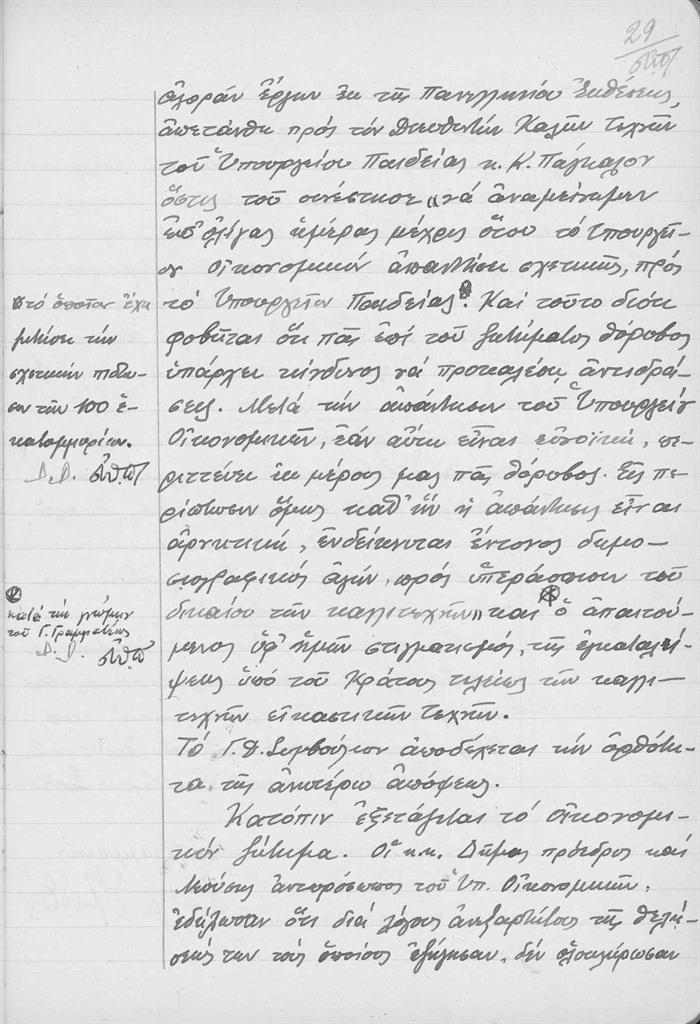 29
ἀγορὰν ἔργων ἐκ τῆς Πανελληνίου Ἐκθέσεως,
ἀπετάνθη πρός τόν Διευθυντήν Καλῶν Τεχνῶν
τοῦ Ὑπουργείου Παιδείας κ. Κ. Πάγκαλον
ὅστις τοῦ συνέστησε "νά ἀναμείνωμεν
ἐπ' ὀλίγας ἡμέρας μέχρις ὅτου τό Ὑπουργεῖ-
ον Οἰκονομικῶν ἀπαντήσῃ σχετικῶς, πρός
τό Ὑπουργεῖον Παιδείας. Καί τοῦτο διότι
φοβᾶται ὅτι πᾶς ἐπί τοῦ ζητήματος θόρυβος
ὑπάρχει κίνδυνος νά προκαλέσῃ ἀντιδρά-
σεις. Μετά τήν ἀπάντησιν τοῦ Ὑπουργείου
Οἰκονομικῶν, ἐάν αὕτη εἶναι εὐνοϊκή, πε-
ριττεύει ἐκ μέρους μας πᾶς θόρυβος. Εἰς πε-
ρίπτωσιν ὅμως καθ' ἥν ἡ ἀπάντησις εἶναι
ἀρνητική, ἐνδείκνυται ἔντονος δημο-
σιογραφικός ἀγών, πρός ὑπεράσπισιν τοῦ
δικαίου τῶν καλλιτεχνῶν" καί ὁ ἀπαιτού-
μενος ὑφ' ἡμῶν στιγματισμός, τῆς ἐγκαταλεί-
ψεως ὑπό τοῦ Κράτους τελείως τῶν καλλι-
τεχνῶν εἰκαστικῶν τεχνῶν.
Τό Γ.Δ. Συμβούλιον ἀποδέχεται τήν ὀρθότη-
τα τῆς ἀνωτέρω ἀπόψεως.
Κατόπιν ἐξετάζεται τό οἰκονομι-
κόν ζήτημα. Οἱ κ.κ. Δήμας πρόεδρος καί
Μούσης ἀντιπρόσωπος τοῦ Ὑπ. Οἰκονομικῶν,
ἐδήλωσαν ὅτι διά λόγους ἀνεξαρτήτους τῆς θελή-
σεώς των τούς ὁποίους ἐξήγησαν, δέν ὡλοκλήρωσαν
τό ὁποῖον ἔχει
μελετήσει τήν
σχετικήν πίστω-
σιν τῶν 100 ἑ-
κατομμυρίων.
κατά τήν γνώμην
τοῦ Γ. Γραμματέως